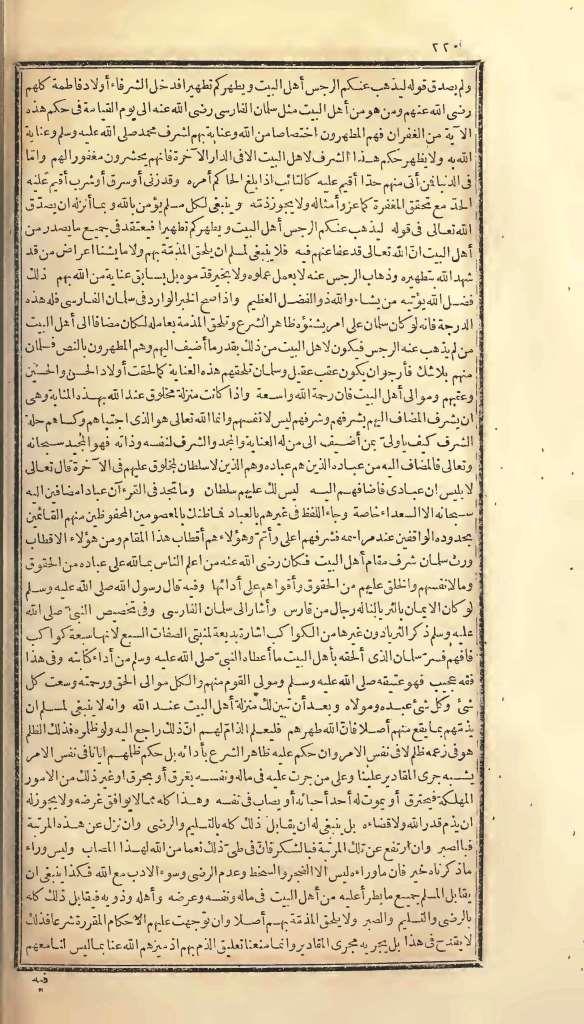 ٢٢٠
ولم يصدق قوله ليذهب عنكم الرجس أهل البيت ويطهركم تطهيرا فدخل الشرفاء أولاد فاطمة كلهم
رضى الله عنهم ومن هو من أهل البيت مثل سلمان الفارسى رضى الله عنه الى يوم القيامة فى حكم هذه
الآية من الغفران فهم المطهرون اختصاصا من الله وعناية بهم لشرف محمد صلى الله عليه وسلم وعناية
الله به ولا يظهر حكم هذا الشرف لاهل البيت الا فى الدار الآخرة فانهم يحشرون مغفور الهم وامّا
فى الدنيا فمن أتى منهم حدّا أقيم عليه كالتائب اذا بلغ الحاكم أمره وقد زنى أو سرق أو شرب أقيم عليه
الحدّ مع تحقق المغفرة كماعز وأمثاله ولا يجوز ذمّه وينبغى لكل مسلم يؤمن بالله وبما أنزله ان يصدّق
الله تعالى فى قوله ليذهب عنكم الرجس أهل البيت ويطهركم تطهيرا فيعتقد فى جميع ما يصدر من
أهل البيت انّ الله تعالى قد عفا عنهم فيه فلا ينبغى لمسلم ان يلحق المذمّة بهم ولا ما يشنأ أعراض من قد
شهد الله بتطهيره وذهاب الرجس عنه لا بعمل عملوه ولا بخير قدّموه بل بسابق عناية من الله بهم ذلك
فضل الله يؤتيه من يشاء والله ذو الفضل العظيم واذا صح الخبر الوارد فى سلمان الفارسى فله هذه
الدرجة فانه لو كان سلمان على امر يشنؤه ظاهر الشرع وتلحق المذمة بعامله لكان مضافا الى أهل البيت
من لم يذهب عنه الرجس فيكون لاهل البيت من ذلك بقدر ما أضيف اليهم وهم المطهرون بالنص فسلمان
منهم بلا شك فأرجو ان يكون عقب عقيل وسلمان تلحقهم هذه العناية كما لحقت أولاد الحسن والحسين
وعقبهم وموالى أهل البيت فان رحمة الله واسعة واذا كانت منزلة مخلوق عند الله بهذه المثابة وهى
ان يشرف المضاف اليهم بشرفهم وشرفهم ليس لانفسهم وانما الله تعالى هو الذى اجتباهم وكساهم حلة
الشرف كيف ياولىّ بمن أضيف الى من له العناية والمجد والشرف لنفسه وذاته فهو المجيد سبحانه
وتعالى فالمضاف اليه من عباده الذين هم عباده وهم الذين لا سلطان لمخلوق عليهم فى الآخرة قال تعالى
لابليس ان عبادى فأضافهم اليه ليس لك عليهم سلطان وما تجد فى القرءآن عبادا مضافين اليه
سبحانه الا السعداء خاصة وجاء اللفظ فى غيرهم بالعباد فما ظنك بالمعصومين المحفوظين منهم القائمين
بحدوده الواقفين عند مراسمه فشرفهم اعلى وأتمّ وهؤلاء هم أقطاب هذا المقام ومن هؤلاء الاقطاب
ورث سلمان شرف مقام أهل البيت فكان رضى الله عنه من اعلم الناس بما لله على عباده من الحقوق
وما لانفسهم والخلق عليهم من الحقوق وأقواهم على أدائها وفيه قال رسول الله صلى الله عليه وسلم
لو كان الايمان بالثريا لناله رجال من فارس وأشار الى سلمان الفارسى وفى تخصيص النبىّ صلى الله
عليه وسلم ذكر الثريا دون غيرها من الكواكب اشارة بديعة لمثبتى الصفات السبع لانها سبعة كواكب
فافهم فسرّ سلمان الذى ألحقه بأهل البيت ما أعطاه النبىّ صلى الله عليه وسلم من أداء كتابته وفى هذا
فقه عجيب فهو عتيقه صلى الله عليه وسلم ومولى القوم منهم والكل موالى الحق ورحمته وسعت كل
شئ وكل شئ عبده ومولاه وبعد أن تبين لك منزلة أهل البيت عند الله وانه لا ينبغى لمسلم ان
يذمّهم بما يقع منهم أصلا فانّ الله طهرهم فليعلم الذامّ لهم انّ ذلك راجع اليه ولو ظلموه فذلك الظلم
هو فى زعمه ظلم لا فى نفس الامر وان حكم عليه ظاهر الشرع بأدائه بل حكم ظلمهم ايانا فى نفس الامر
يشبه جرى المقادير علينا وعلى من جرت عليه فى ماله ونفسه بغرق أو بحرق أو غير ذلك من الامور
المهلكة فيحترق أو يموت له أحد أحبائه أو يصاب فى نفسه وهذا كله مما لا يوافق غرضه ولا يجوز له
ان يذم قدر الله ولا قضاءه بل ينبغى له ان يقابل ذلك كله بالتسليم والرضى وان نزل عن هذه المرتبة
فبالصبر وان ارتفع عن تلك المرتبة فبالشكر فانّ فى طىّ ذلك نعما من الله لهذا المصاب وليس وراء
ما ذكرناه خير فان ما وراءه ليس الا الضجر والسخط وعدم الرضى وسوء الادب مع الله فكذا ينبغى ان
يقابل المسلم جميع ما يطرأ عليه من أهل البيت فى ماله ونفسه وعرضه وأهله وذويه فيقابل ذلك كله
بالرضى والتسليم والصبر ولا يلحق المذمّة بهم أصلا وان توجهت عليهم الاحكام المقررة شرعا فذلك
لا يقدح فى هذا بل يجريه مجرى المقادير وانما منعنا تعليق الذم بهم اذ ميزهم الله عنا بما ليس لنا معهم
فيه